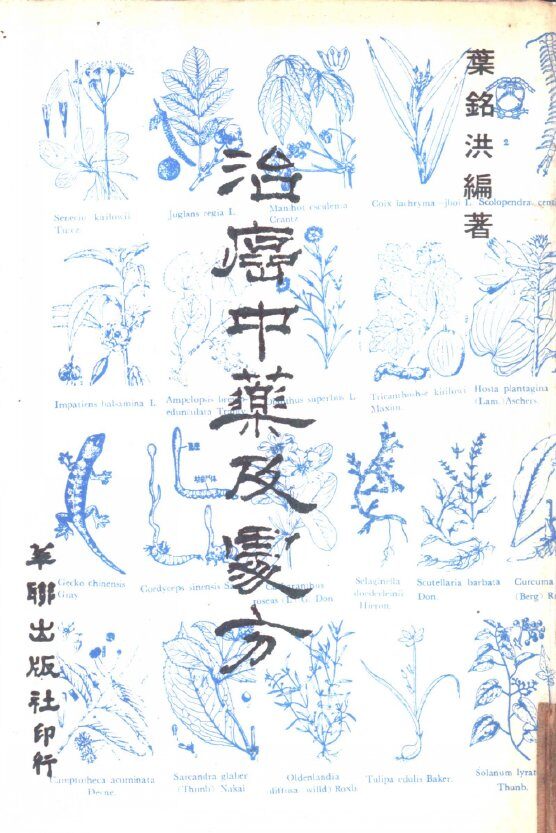 葉銘洪編著
治癌中藥及處方
華聯出版社印行
Senecio kirilowii
Turcz.
Juglans regia L.
Manihot esculenta
Crantz
Coix lachryma-jboi L.
Scolopendra
2
Impatiens balsamina L.
Ampelopsis
Dianthus superbus L.
Tricanthosher kirilowii
Maxim.
Hosta plantagina
(Lam.) Aschers.
Gecko chinensis
Gray.
Cordyceps sinensis
Catharanthus
roseas (L.) G. Don.
Selaginella
doederleinii
Hieron.
Scutellaria barbata
Don.
Curcuma
(Berg)
Camptotheca acuminata
Decne.
Sarcandra glaber
(Thunb) Nakai
Oldenlandia
(diffusa willd) Roxb.
Tulipa edulis Baker.
Solanum lyrat
Thunb.